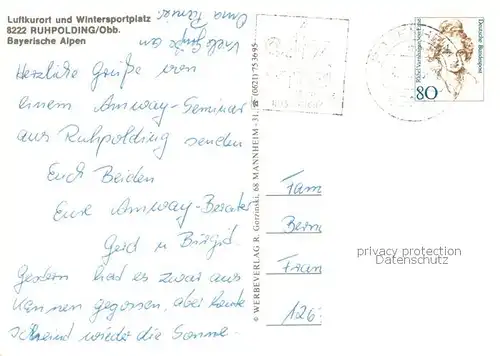 Luftkurort und Wintersportplatz
8222 RUHPOLDING/Obb.
Bayerische Alpen
Viele Grüße an
Oma
Herzliche Grüße von
einem Amway-Seminar
aus Ruhpolding senden
Euch Beiden
Eure Amway-Berater
Gerd u Birgid.
Gestern hat es zwar aus
Kannen gegossen, aber heute
scheint wieder die Sonne.
© WERBEVERLAG R. Gorzinski, 68 MANNHEIM - 31, ☎ (0621) 753695
Deutsche Bundespost
80
Fam
Bern
Fran
126
privacy protection
Datenschutz